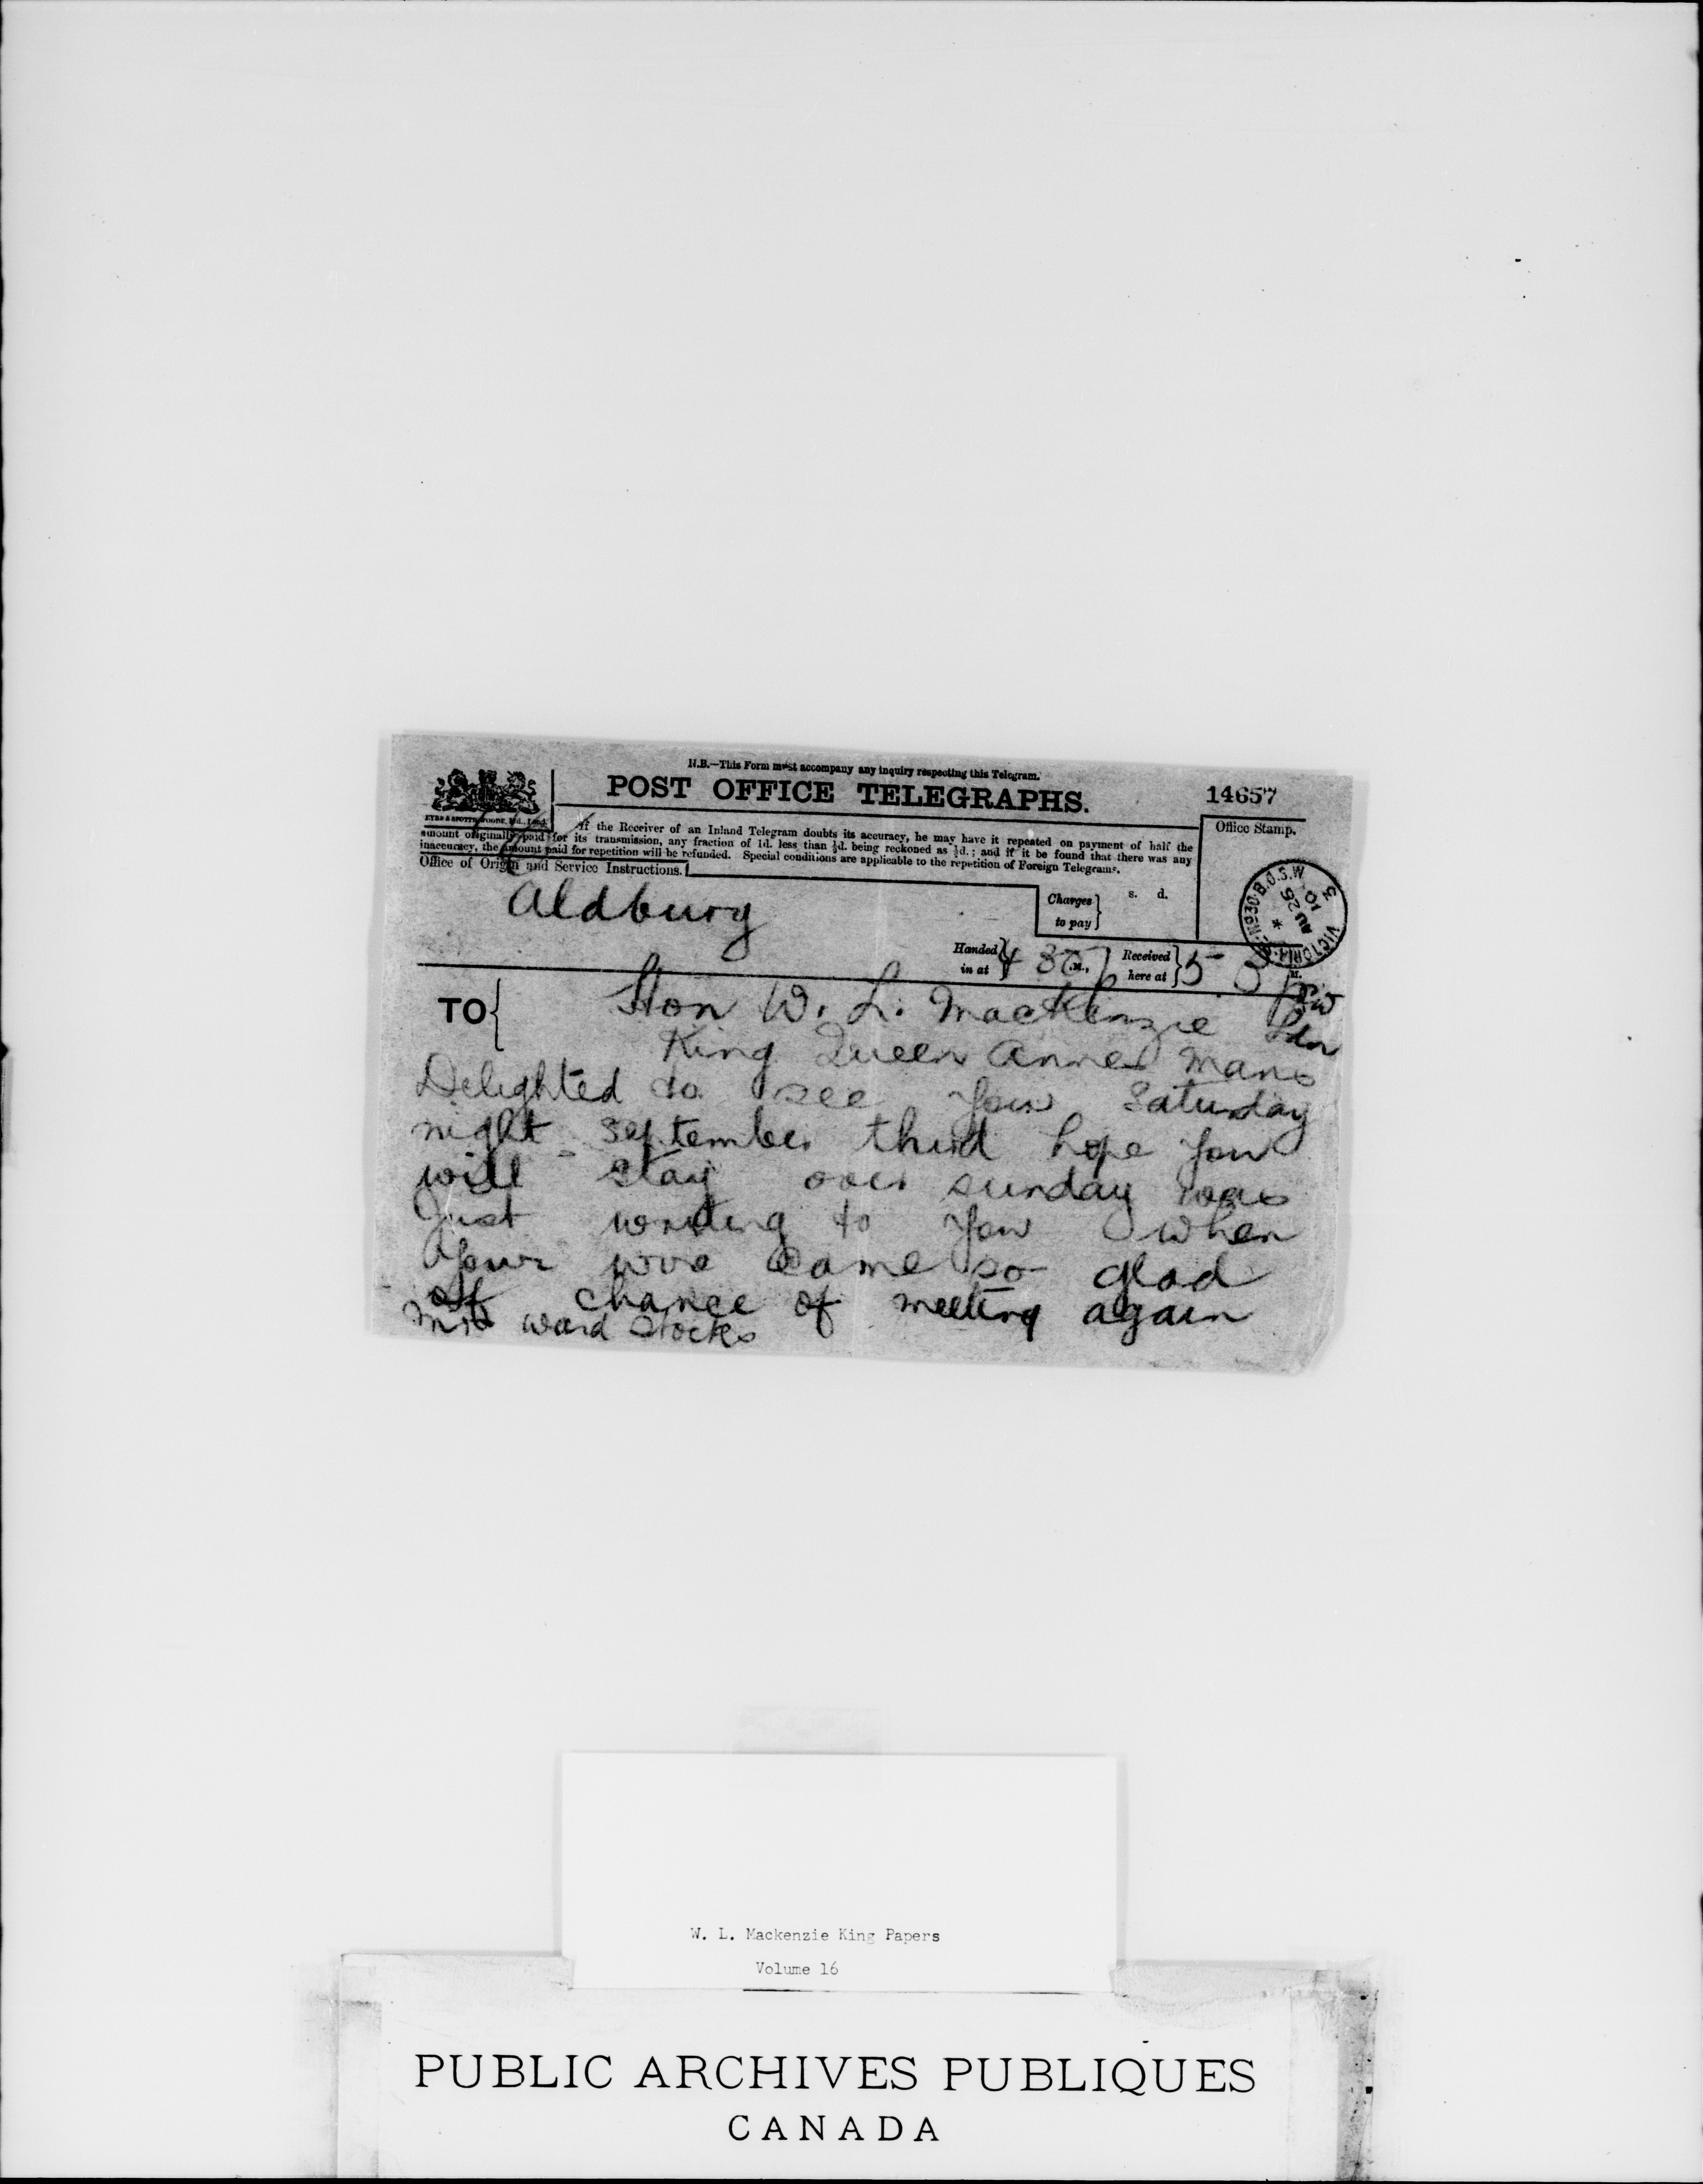 N.B.—This Form must accompany any inquiry respecting this Telegram.
POST OFFICE TELEGRAPHS.
14657
EYRE & SPOTTISWOODE, Ltd., Lond.
If the Receiver of an Inland Telegram doubts its accuracy, he may have it repeated on payment of half the
amount originally paid for its transmission, any fraction of 1d. less than ½d. being reckoned as ½d.; and if it be found that there was any
inaccuracy, the amount paid for repetition will be refunded. Special conditions are applicable to the repetition of Foreign Telegrams.
Office Stamp.
Office of Origin and Service Instructions.
Aldbury
Charges to pay
s. d.
VICTORIA
AU 25
10
B.O.S.W
Handed in at 4
M.,
Received here at 5
M.
TO
Hon W. L. MacKenzie
King Queen Annes Mans
Ldn
Delighted to see you Saturday
night september third hope you
will stay over sunday was
Just writing to you when
your wire came so glad
of chance of meeting again
Mrs Ward Stocks
W. L. Mackenzie King Papers
Volume 16
PUBLIC ARCHIVES PUBLIQUES
CANADA